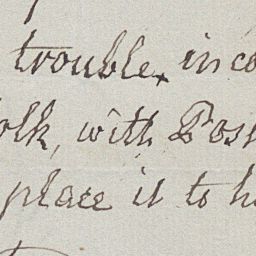 trouble, in co
olk, with Poss
place it to h